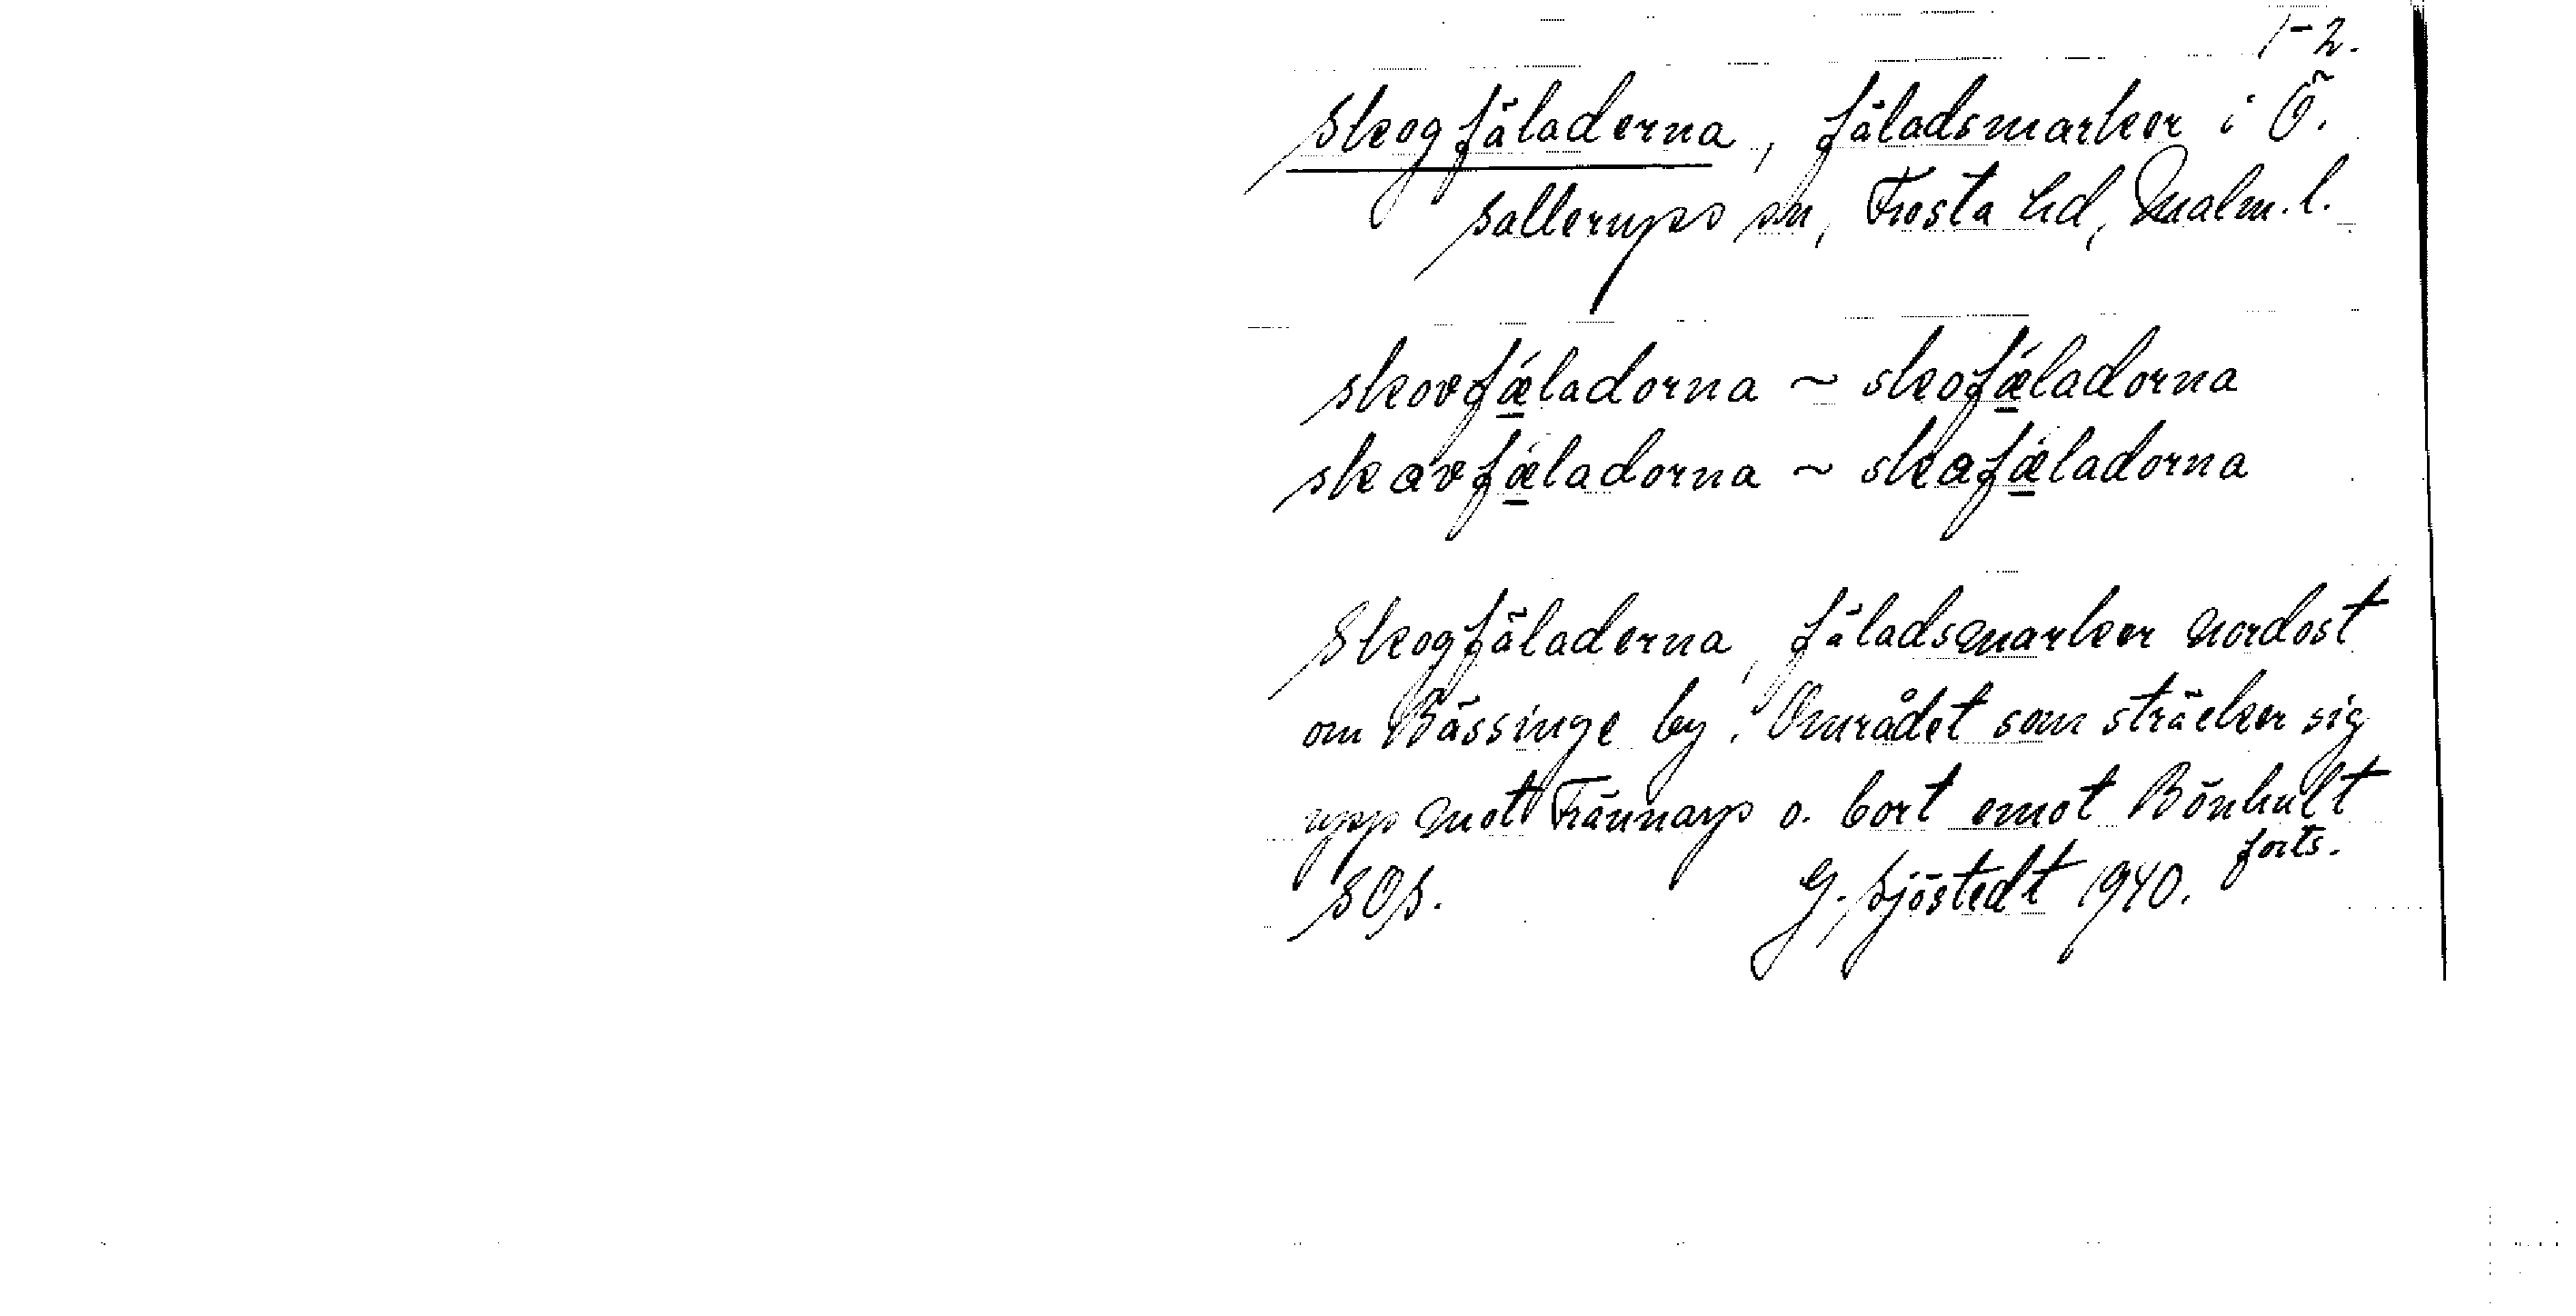 1-2.
Skogfäladerna, fäladsmarker i Ö.
Sallerups sn, Frosta hd, Malm. l.
skovfǽladorna ~ skofǽladorna
skavfǽladorna ~ skafǽladorna
Skogfäladerna, fäladsmarker nordost
om Bässinge by. Området som sträcker sig
upp mot Trännarp o. bort emot Bönhult
forts.
SOS. G. Sjöstedt 1940.